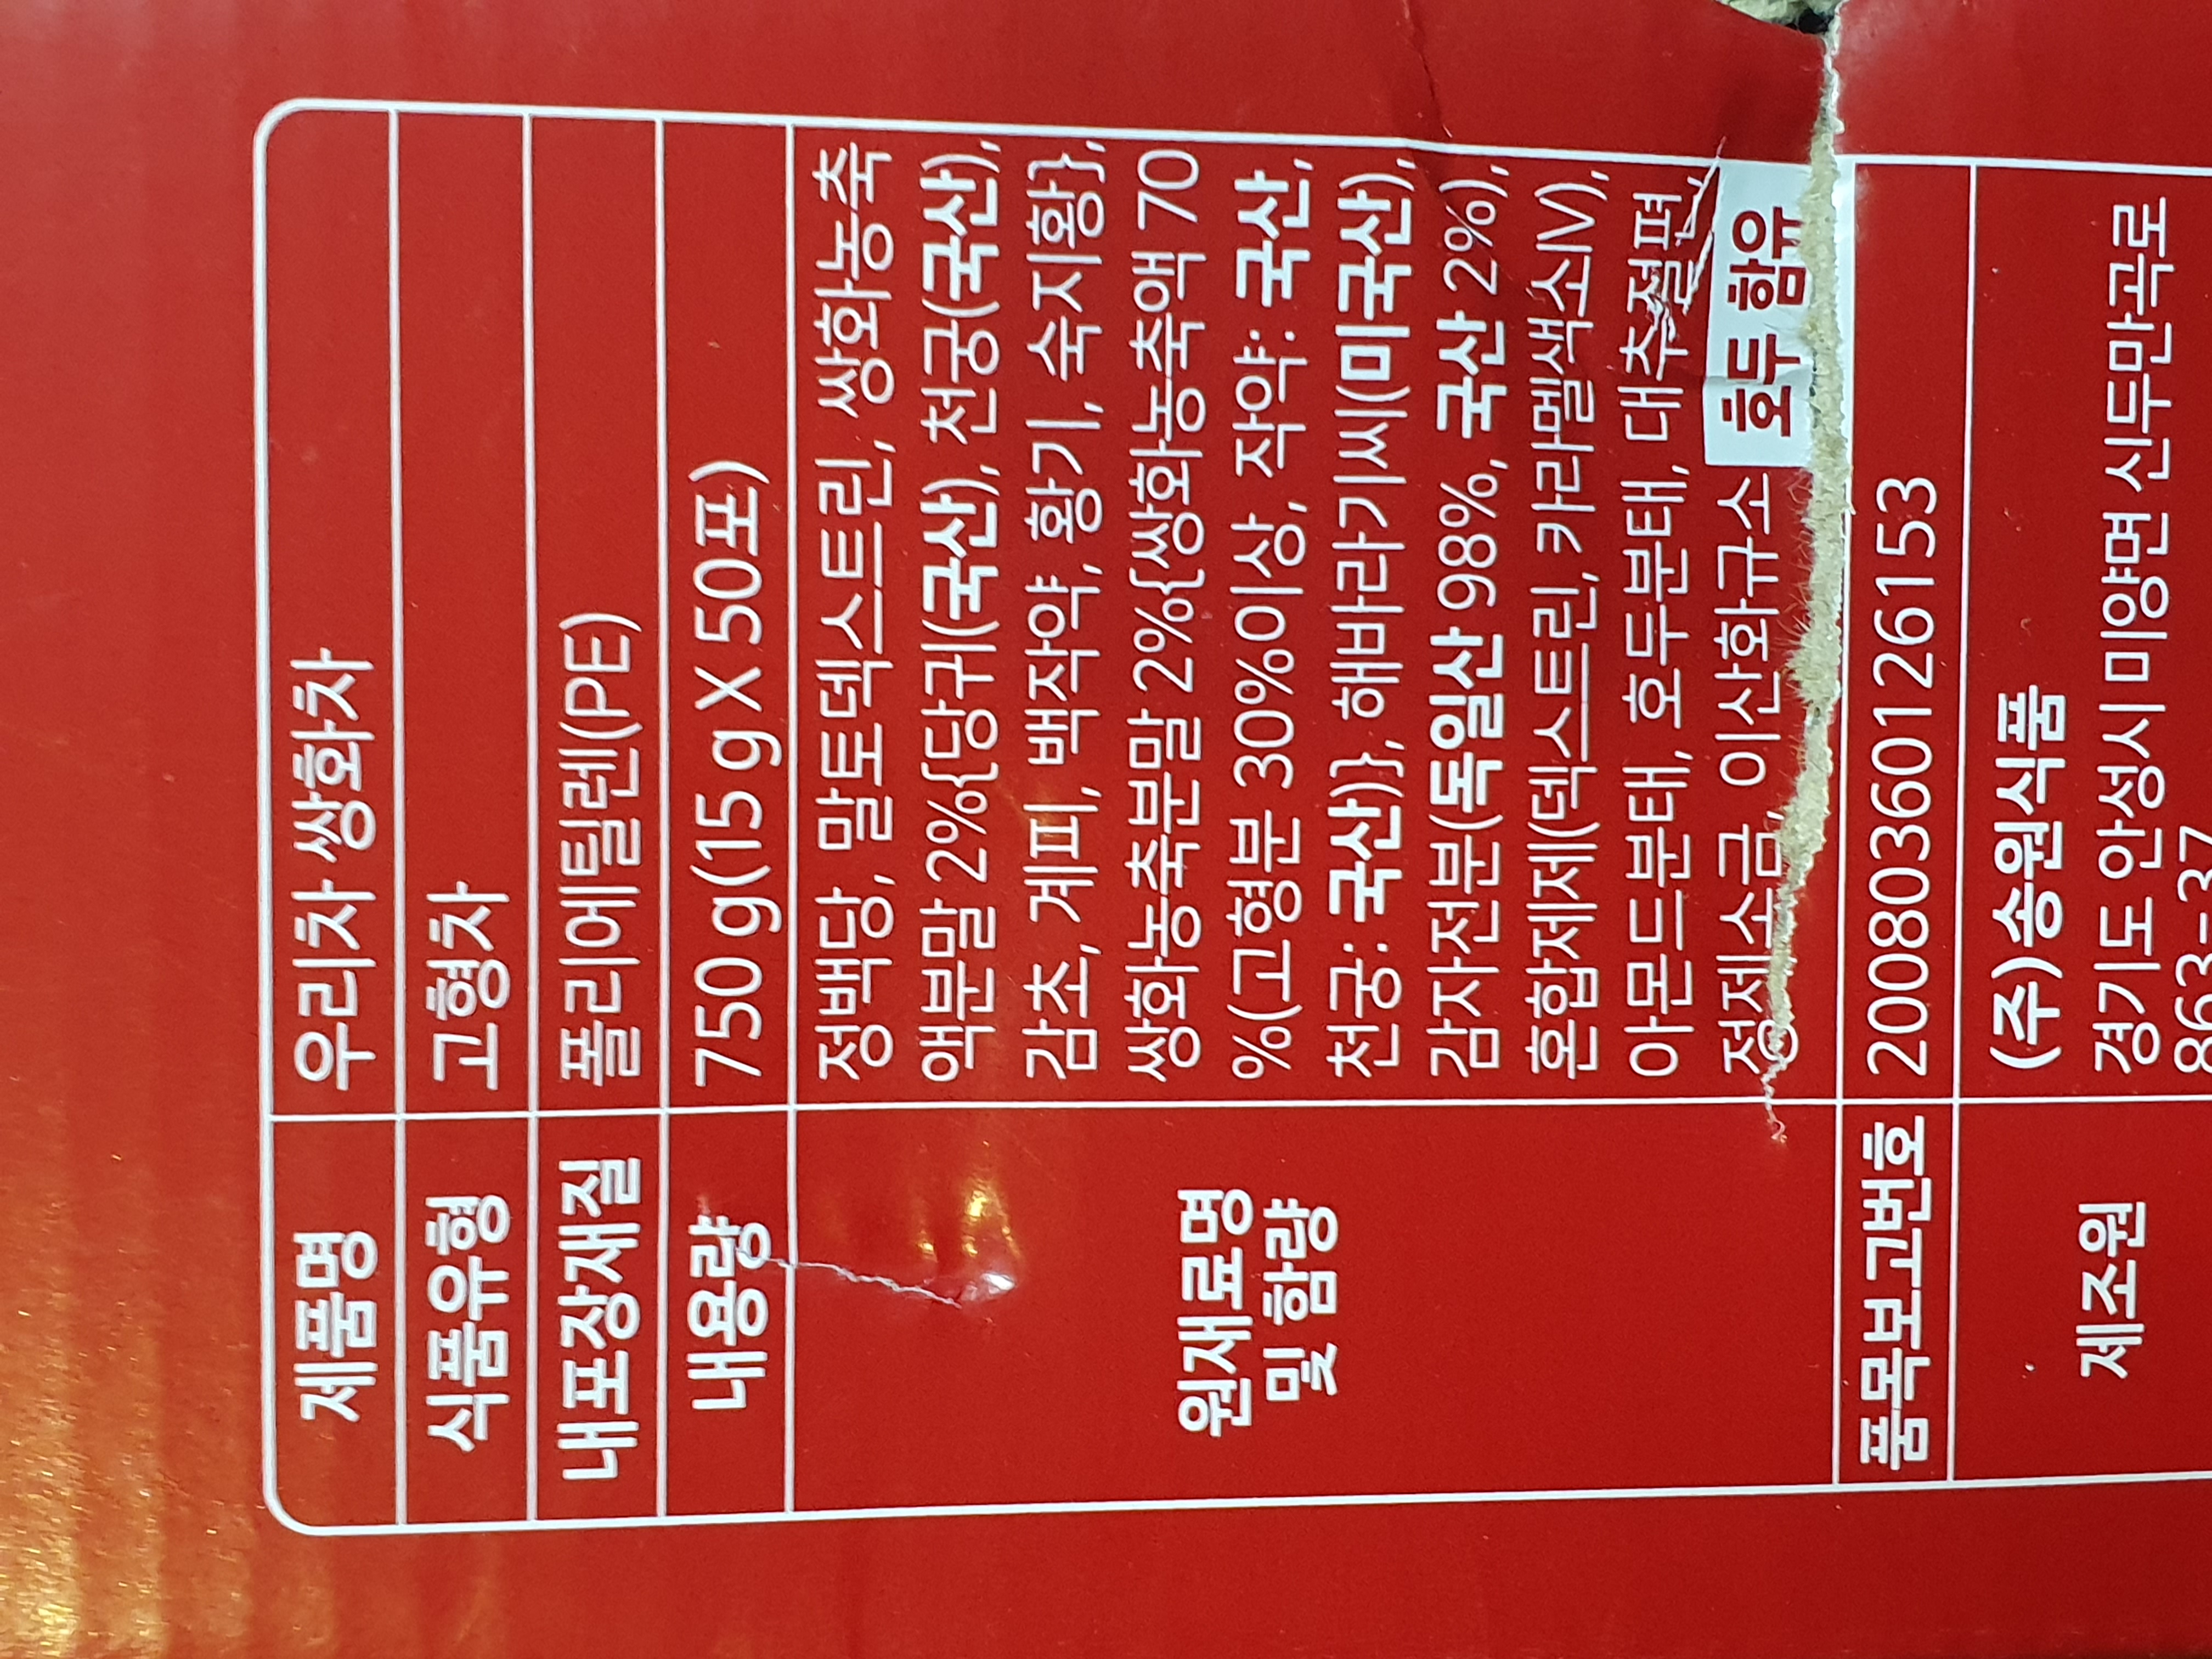 제품명 우리차 쌍화차
식품유형 고형차
내포장재질 폴리에틸렌(PE)
내용량 750 g(15 g X 50포)
원재료명
및 함량
정백당, 말토덱스트린, 쌍화농축
액분말 2%{당귀(국산), 천궁(국산),
감초, 계피, 백작약, 황기, 숙지황},
쌍화농축분말 2%{쌍화농축액 70
%(고형분 30%이상, 작약: 국산,
천궁: 국산)}, 해바라기씨(미국산),
감자전분(독일산 98%, 국산 2%),
혼합제제(덱스트린, 카라멜색소IV),
아몬드분태, 호두분태, 대추절편,
정제소금, 이산화규소 호두 함유
품목보고번호 20080360126153
제조원 (주)송원식품
경기도 안성시 미양면 신두만곡로
863-37